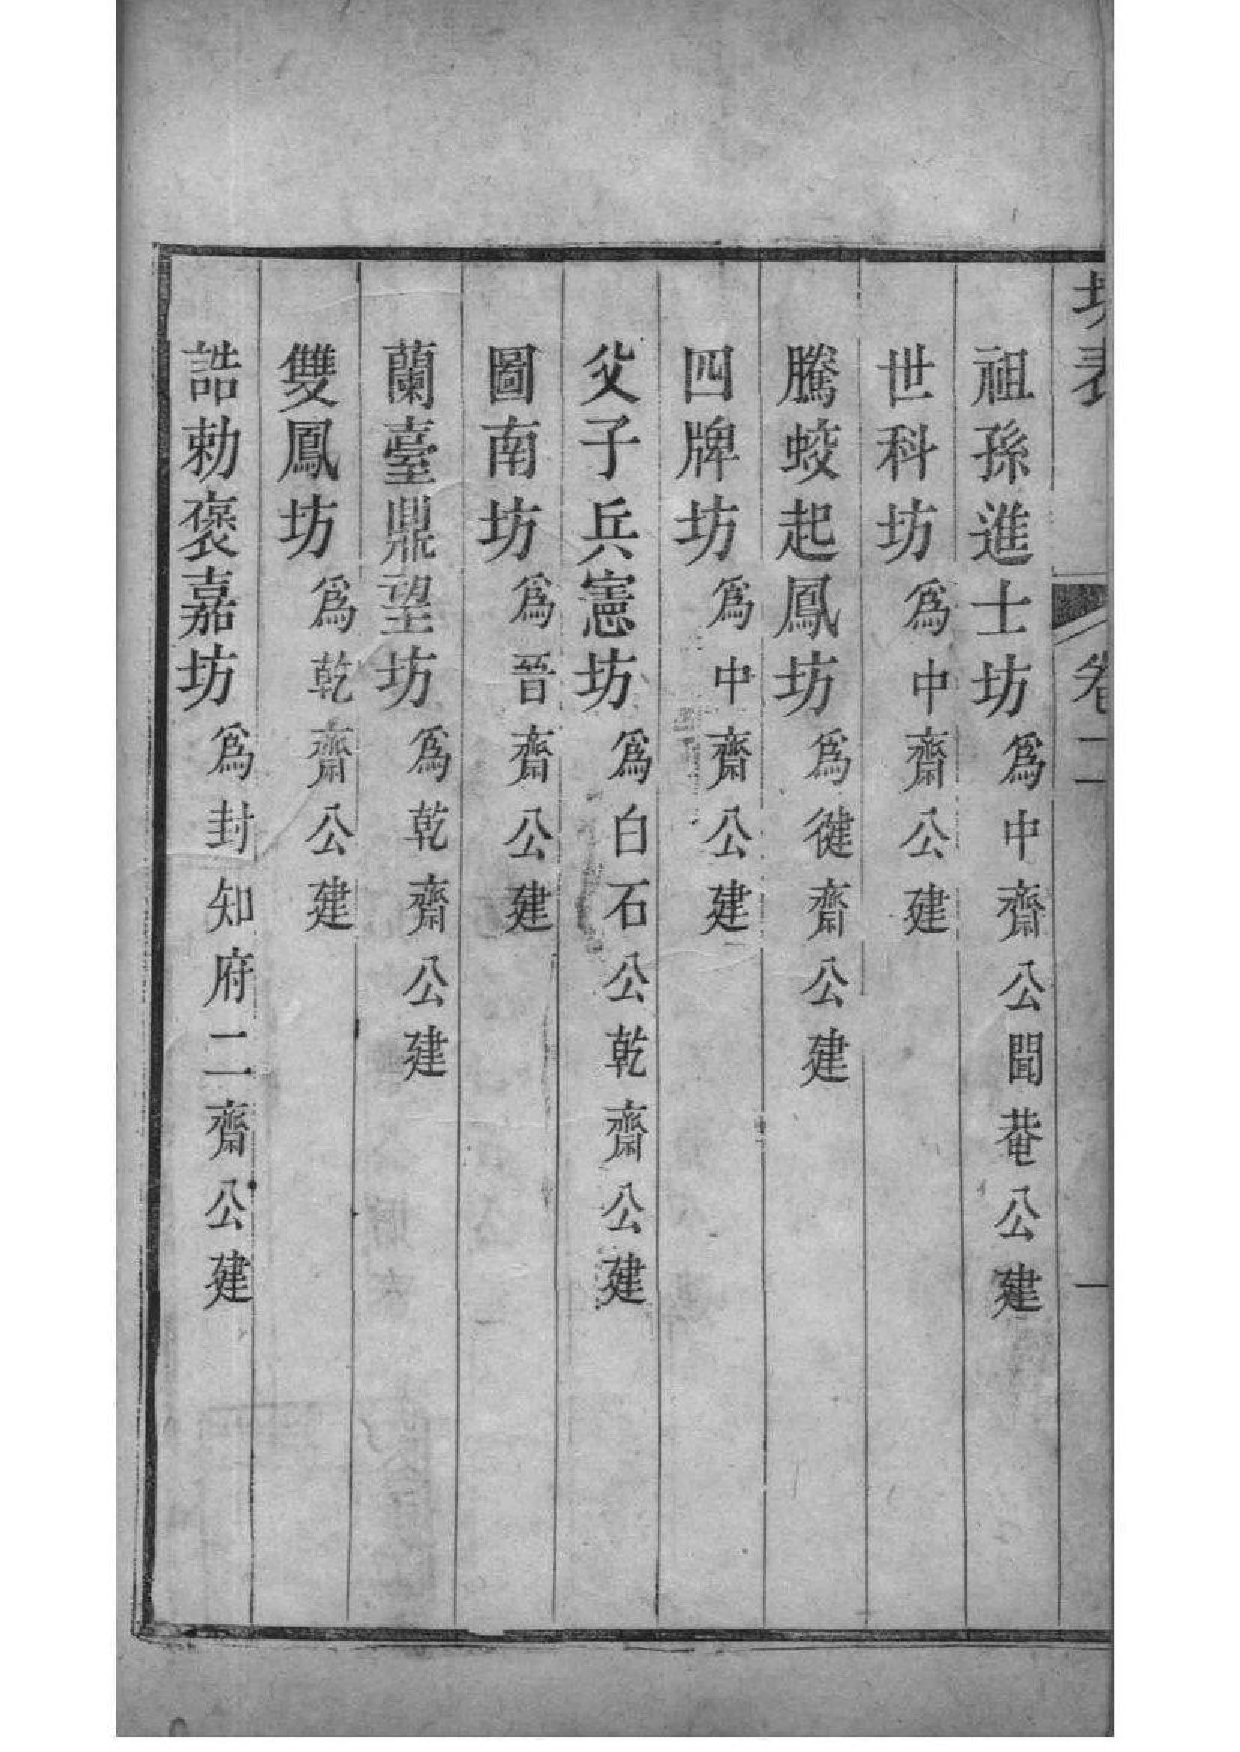 坊表 卷二 一
祖孫進士坊爲中齋公聞菴公建
世科坊爲中齋公建
騰蛟起鳳坊爲健齋公建
四牌坊爲中齋公建
父子兵憲坊爲白石公乾齋公建
圖南坊爲晉齋公建
蘭臺鼎望坊爲乾齋公建
雙鳳坊爲乾齋公建
誥勅褒嘉坊爲封知府二齋公建